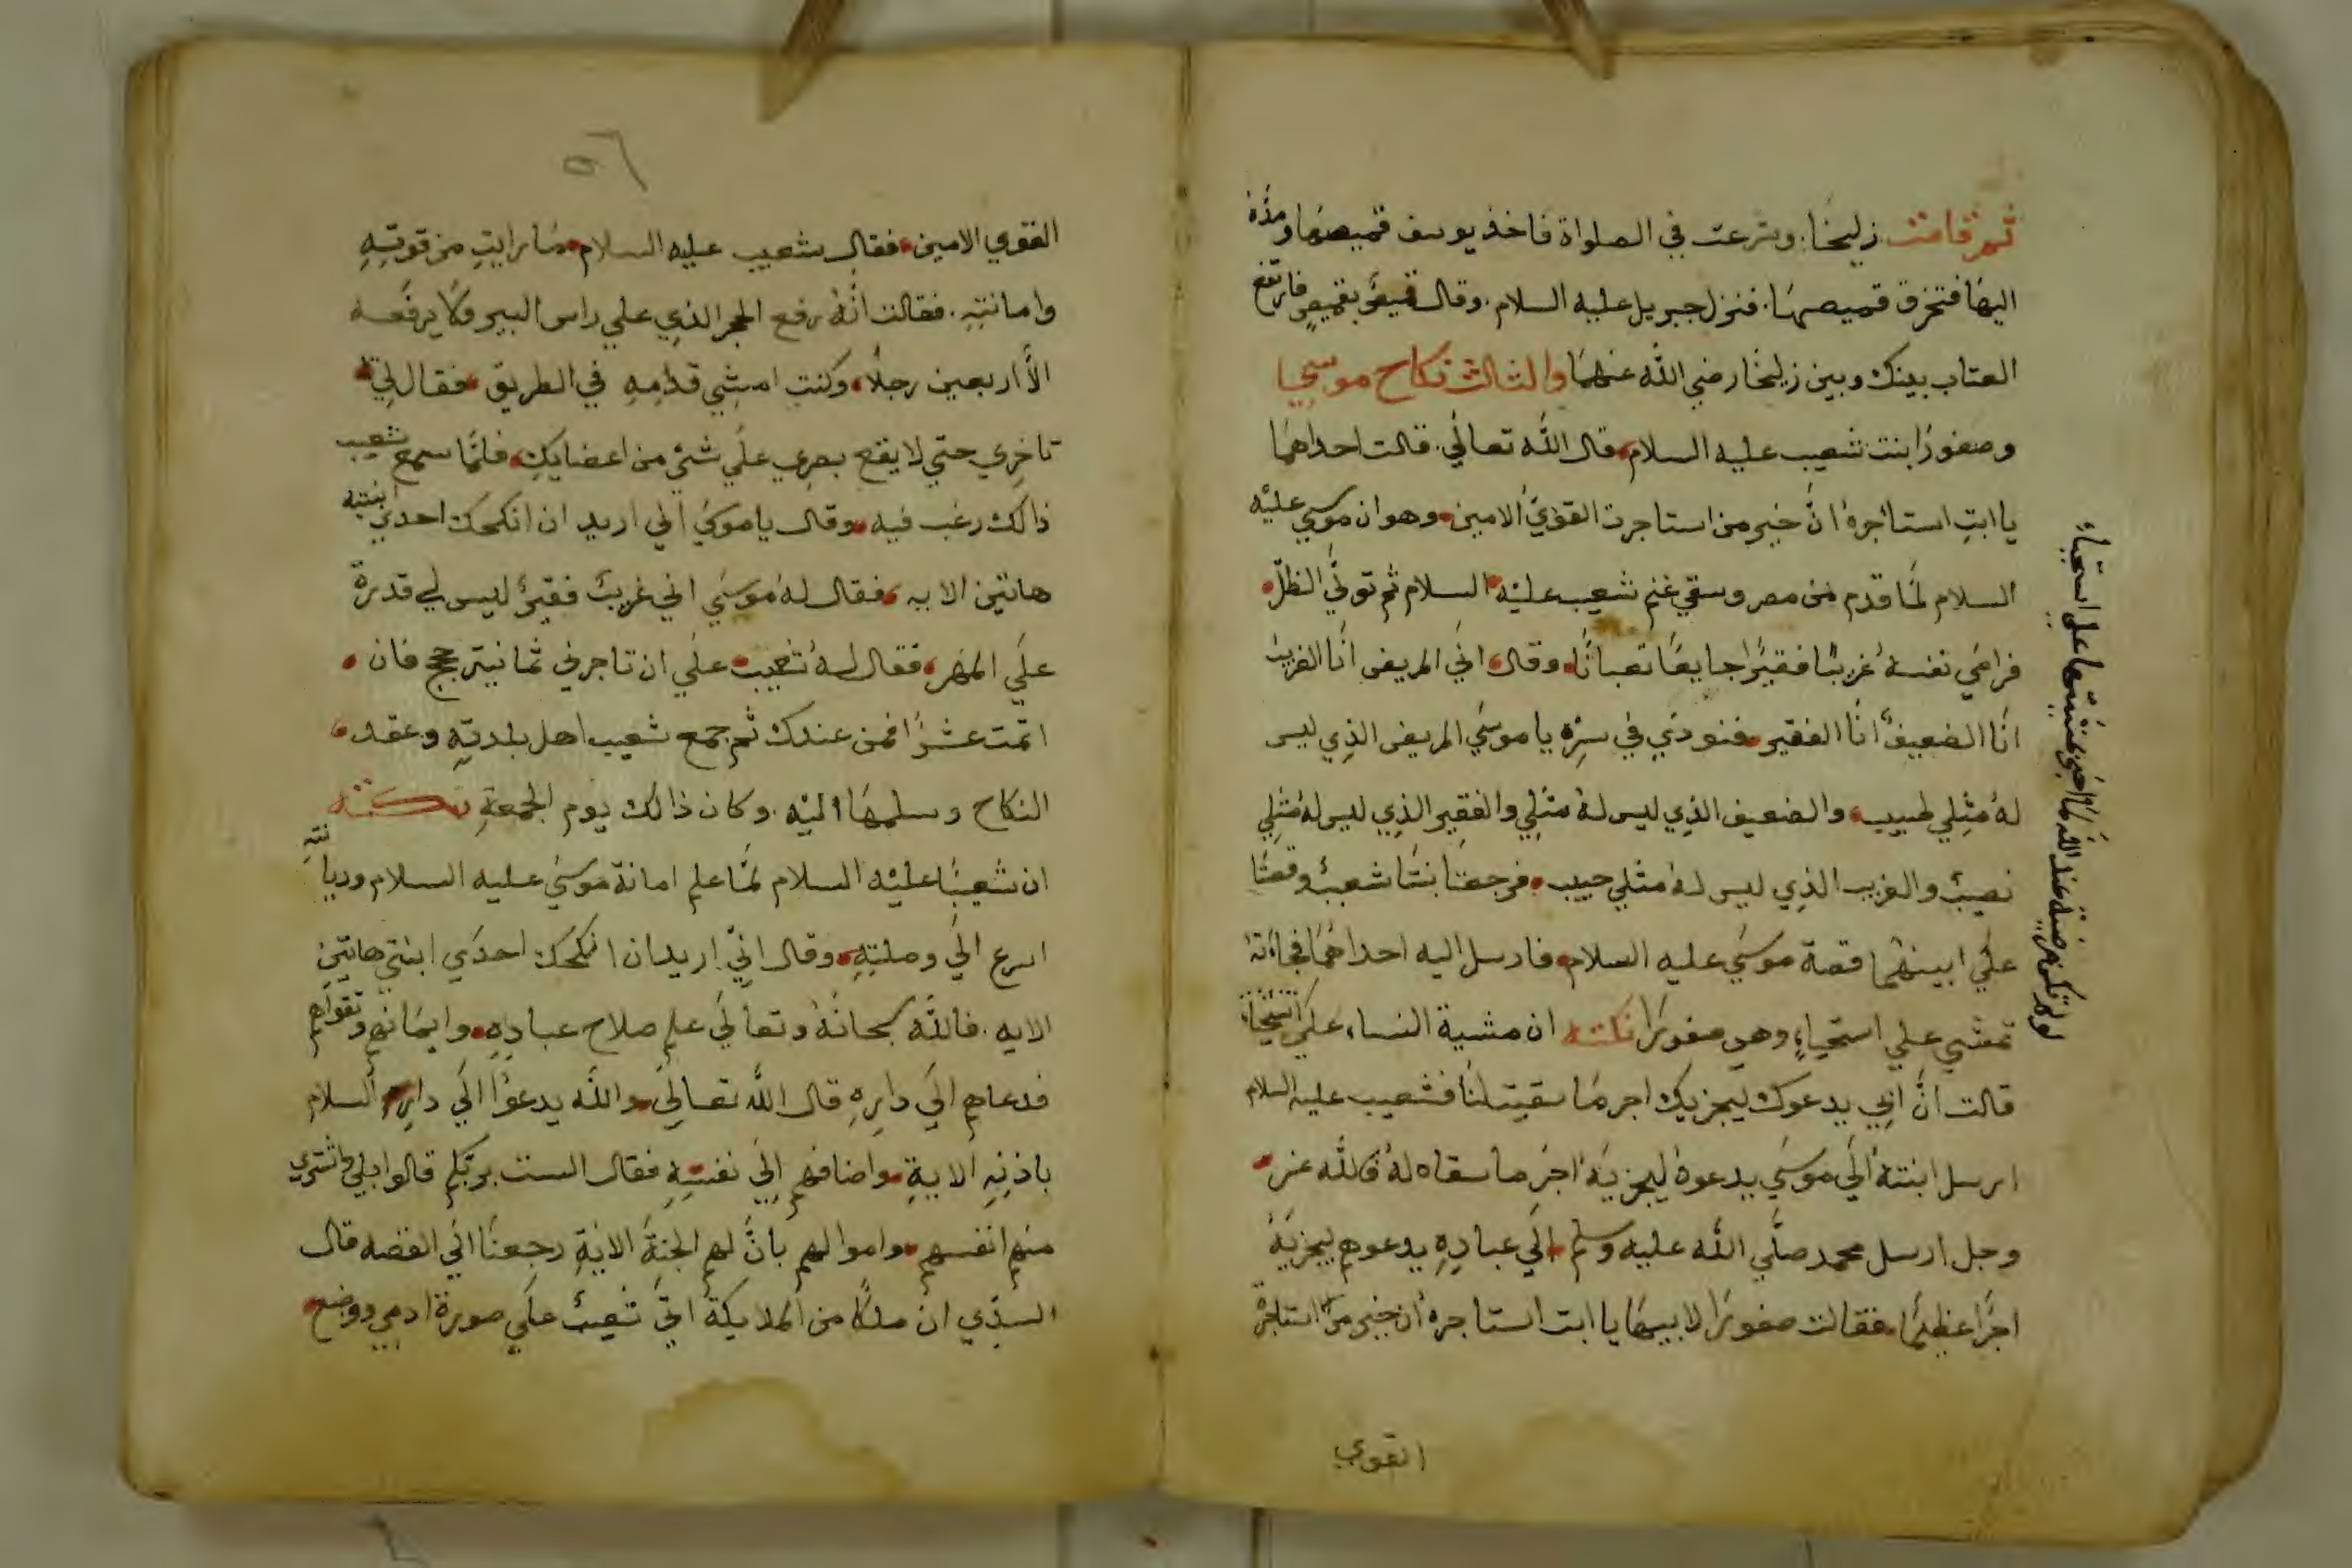 ثم قامت زليخا وشرعت في الصلواة فاخذ يوسف قميصها ومده
اليها فتخرق قميصها. فنزل جبريل عليه السلام. وقال قميص بقميص فارتفع
العتاب بينك وبين زليخا رضي الله عنهما والثالث نكاح موسي
وصفورا بنت شعيب عليه السلام، قال الله تعالي. قالت احداهما
يا ابت استأجره ان خير من استاجرت القوي الامين. وهو ان موسي عليه
السلام لما قدم من مصر وسقي غنم شعيب عليه السلام ثم تولي الظل.
فراي نفسه غريبا فقيرا جايعا تعبانا. وقال، اني المريض انا الغريب
انا الضعيف انا الفقير. فنودي في سره يا موسي المريض الذي ليس
له مثلي طبيب، والضعيف الذي ليس له مثلي والفقير الذي ليس له مثلي
نصيب والغريب الذي ليس له مثلي حبيب. فرجعتا بنتا شعيب وقصتا
علي ابيهما قصة موسي عليه السلام. فارسل اليه احداهما فجاءته
تمشي علي استحياء، وهي صفورا نكتة ان مشية النساء علي استحياء
قالت ان ابي يدعوك ليجزيك اجر ما سقيت لنا فشعيب عليه السلام
ارسل ابنته الي موسي يدعوه ليجزيه اجر ما سقاه له فالله عز
وجل ارسل محمد صلي الله عليه وسلم الي عباده يدعوهم ليجزيه
اجرا عظيما. فقالت صفورا لابيها يا ابت استاجره ان خير من استاجرة
القوي
لو لم تكن مرضية عند الله لما اخبر عن مشيتها علي استحياء
٥٦
القوي الامين. فقال شعيب عليه السلام. ما رايت من قوته
وامانته. فقالت انه رفع الحجر الذي علي راس البير ولا يرفعه
الا اربعين رجلا، وكنت امشي قدامه في الطريق. فقال لي
تاخري حتي لا يقع بصري علي شئ من اعضايك. فلما سمع شعيب
ذالك رغب فيه. وقال يا موسي اني اريد ان انكحك احدي ابنتيه
هاتين الايه، فقال له موسي اني غريب فقير ليس لي قدرة
علي المهر، فقال له شعيب. علي ان تاجرني ثمانية حجج فان.
اتمت عشرا فمن عندك ثم جمع شعيب اهل بلدته وعقد.
النكاح وسلمها اليه. وكان ذالك يوم الجمعة نكتة
ان شعيبا عليه السلام لما علم امانة موسي عليه السلام وديانته
اسرع الي وصلته. وقال اني اريد ان انكحك احدي ابنتي هاتين
الايه. فالله سبحانه وتعالي علم صلاح عباده. وايمانهم وتقواهم
فدعاهم الي داره قال الله تعالي والله يدعوا الي دار السلام
باذنه الاية. واضافهم الي نفسه فقال الست بربكم قالوا بلي واشتري
منهم انفسهم. واموالهم بان لهم الجنة الاية رجعنا الي القصه قال
السدي ان ملكا من الملايكة اتي شعيب علي صورة ادمي ووضع